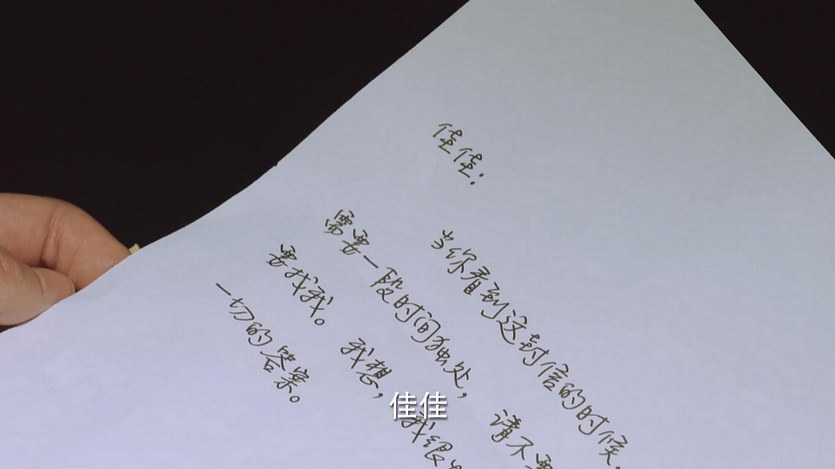 佳佳:
当你看到这封信的时候,
需要一段时间独处, 请不要
要找我。 我想, 我很
一切的答案。
佳佳